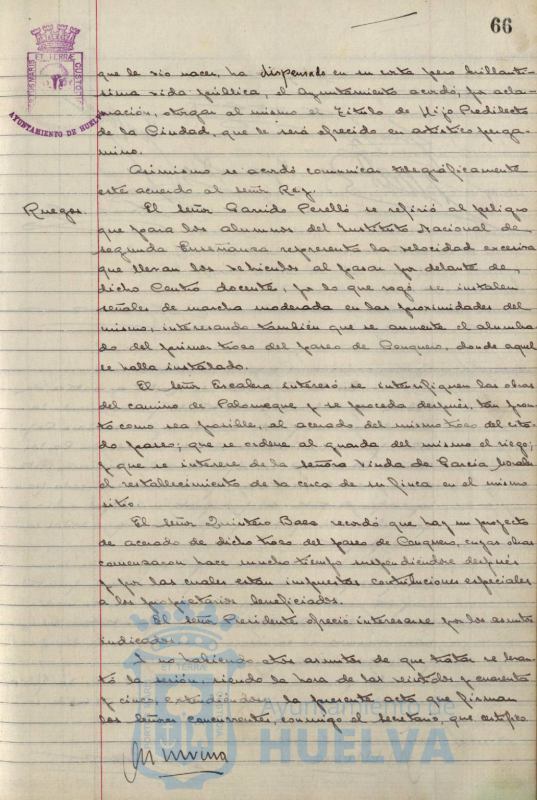 66
AYUNTAMIENTO DE HUELVA
que le vio nacer, ha dispensado en su corta pero brillantí-
sima vida pública, el Ayuntamiento acordó, por acla-
mación, otorgar al mismo el Título de Hijo Predilecto
de la Ciudad, que le será ofrecido en artístico perga-
mino.
Asimismo se acordó comunicar telegráficamente
este acuerdo al señor Rey.
Ruegos.
El señor Garrido Perelló se refirió al peligro
que para los alumnos del Instituto Nacional de
segunda Enseñanza representa la velocidad excesiva
que llevan los vehículos al pasar por delante de
dicho Centro docente, por lo que rogó se instalen
señales de marcha moderada en las proximidades del
mismo, interesando también que se aumente el alumbra-
do del primer trozo del paseo de Conquero, donde aquel
se halla instalado.
El señor Escalera interesó, se intensifiquen las obras
del camino de Palomeque y se proceda después, tan pron-
to como sea posible, al acerado del mismo trozo del cita-
do paseo; que se ordene al guarda del mismo el riego;
y que se interese de la señora Viuda de García
el restablecimiento de la cerca de su finca en el mismo
sitio.
El señor Quintero Baez recordó que hay un proyecto
de acerado de dicho trozo del paseo de Conquero, cuyas obras
comenzaron hace mucho tiempo suspendiéndose después
y por las cuales están impuestas contribuciones especiales
a los propietarios beneficiados.
El señor Presidente ofreció interesarse por los asuntos
indicados.
Y no habiendo otros asuntos de que tratar se levan-
tó la sesión, siendo la hora de las veintidos y cuarenta
y cinco, extendiéndose la presente acta que firman
los señores concurrentes, conmigo el secretario, que certifico.
Ayuntamiento de
HUELVA